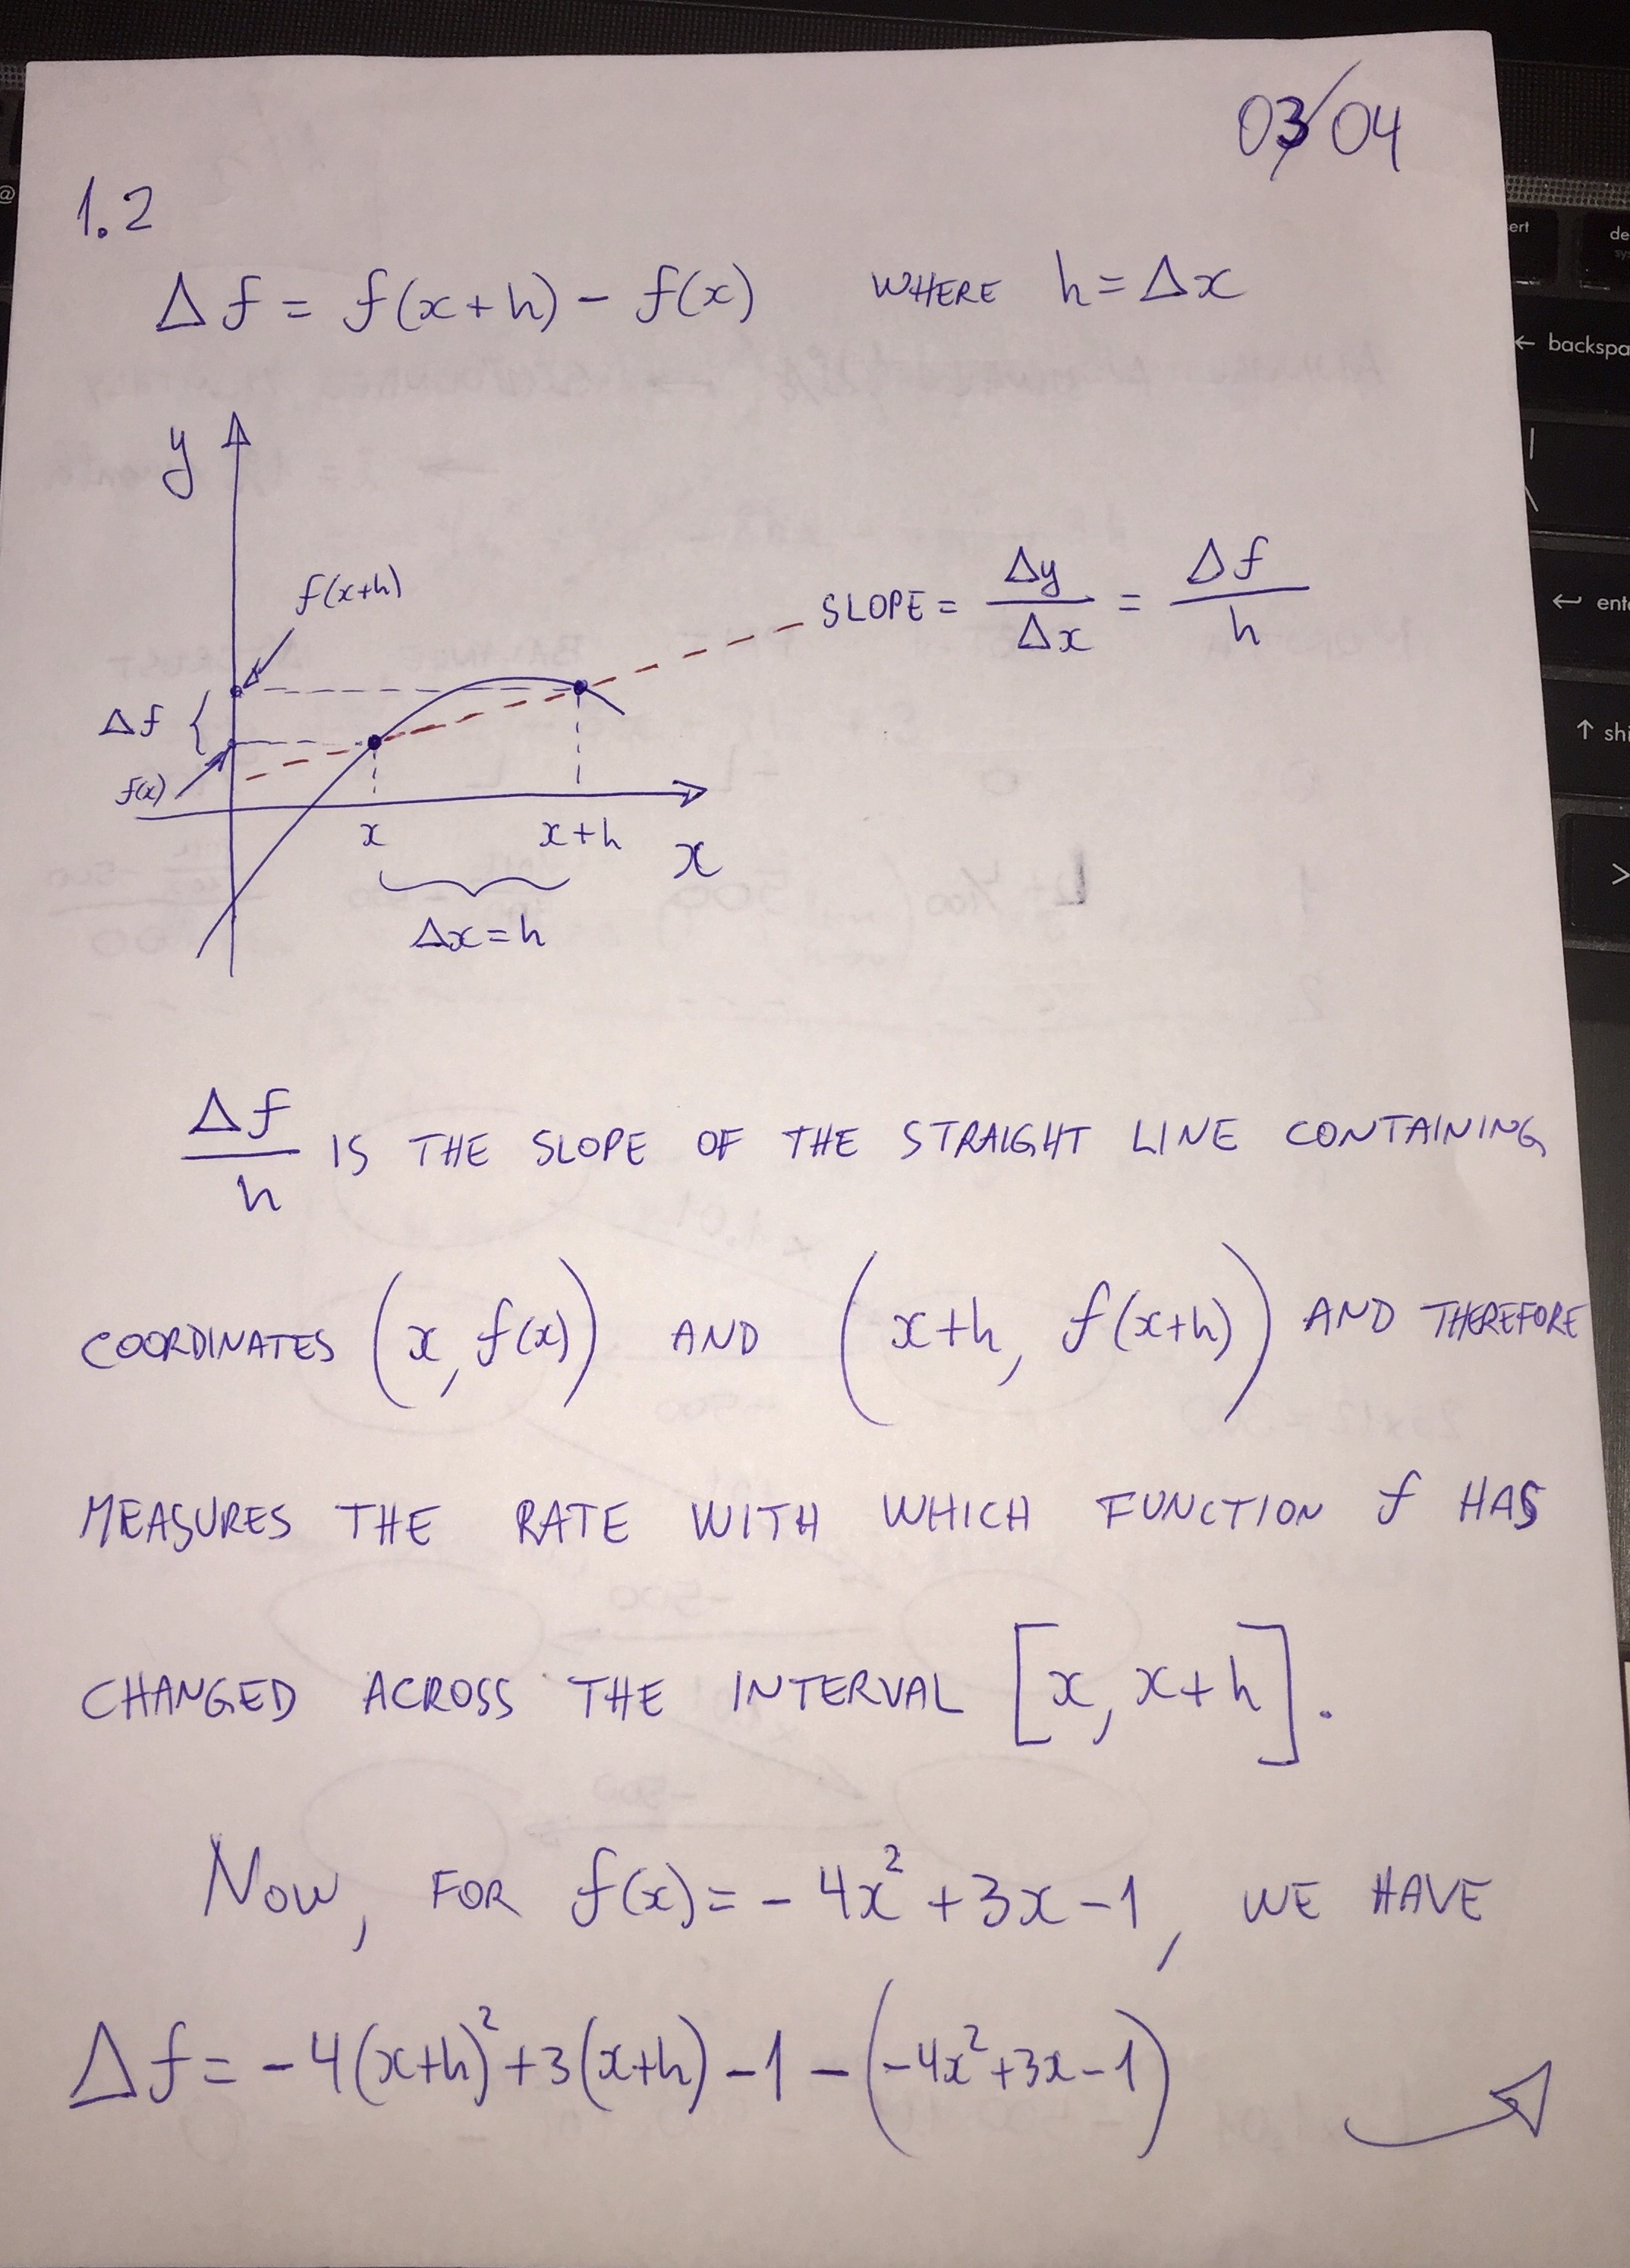 03/04
1.2
Δf = f(x+h) - f(x) WHERE h = Δx
y
f(x+h)
SLOPE = Δy/Δx = Δf/h
Δf {
f(x)
x x+h x
Δx = h
Δf/h IS THE SLOPE OF THE STRAIGHT LINE CONTAINING
COORDINATES (x, f(x)) AND (x+h, f(x+h)) AND THEREFORE
MEASURES THE RATE WITH WHICH FUNCTION f HAS
CHANGED ACROSS THE INTERVAL [x, x+h].
NOW, FOR f(x) = -4x² + 3x - 1, WE HAVE
Δf = -4(x+h)² + 3(x+h) - 1 - (-4x² + 3x - 1)
@
ert
← backspa
|
\
↑ shi
>